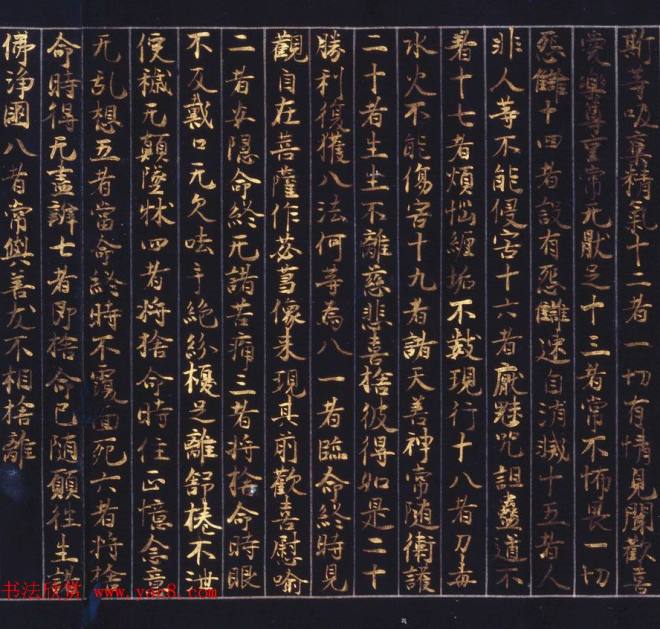 斯等吸棄精氣十二者一切有情見聞歡喜
愛樂尊重常无猒足十三者常不怖畏一切
怨讎十四者設有怨讎速自消滅十五者人
非人等不能侵害十六者厭魅咒詛蠱道不
著十七者煩惱纏垢不數現行十八者刀毒
水火不能傷害十九者諸天善神常隨衛護
二十者生生不離慈悲喜捨彼得如是二十
勝利復獲八法何等為八一者臨命終時見
觀自在菩薩作苾芻像来現其前歡喜慰喻
二者安隱命終无諸苦痛三者將捨命時眼
不反戴口无欠呿手絕紛擾足離舒捲不泄
便穢无顛墜牀四者將捨命時住正憶念意
无乱想五者當命終時不覆面死六者將捨
命時得无盡辯七者即捨命已随願往生諸
佛淨國八者常與善友不相捨離
书法欣赏 www.yac8.com